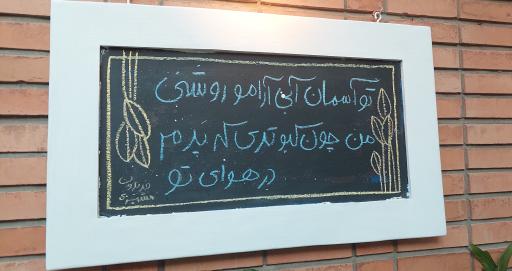 تو آسمان آبی آرام و روشنی
من چون کبوتری که پرم
در هوای تو
فریدون
مشیری